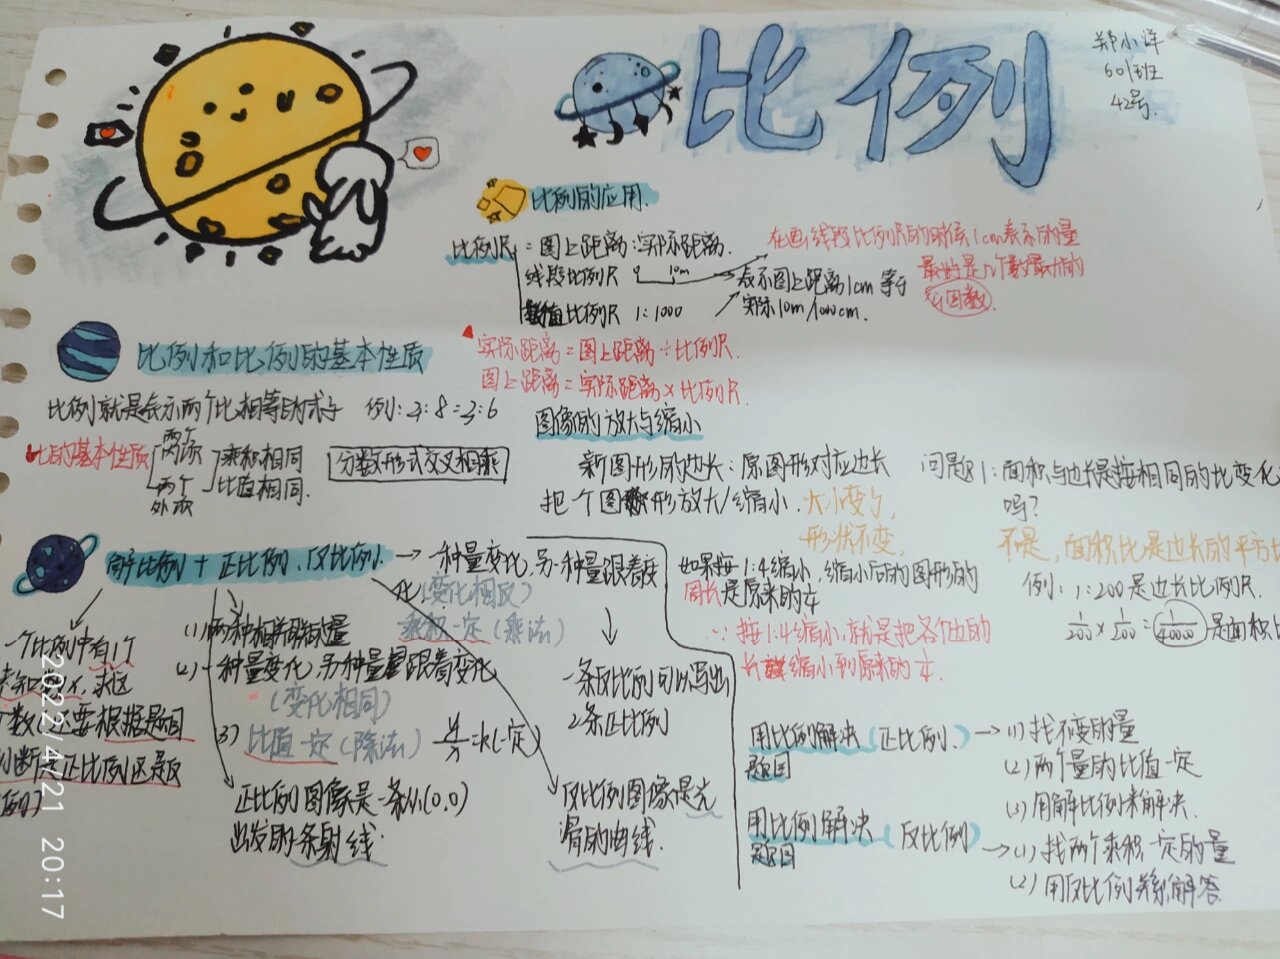 比例
郑小洋
601班
42号
比例的应用
比例尺=图上距离:实际距离.
线段比例尺 0 10m
数值比例尺 1:1000
表示图上距离1cm等于
实际10m/1000cm.
在画线段比例尺的时候1cm表示的量
最好是几个数最大的
公因数.
实际距离=图上距离÷比例尺.
图上距离=实际距离×比例尺
比例和比例的基本性质
比例就是表示两个比相等的式子 例:4:8=3:6
比的基本性质
两个
内项
两个
外项
乘积相同
比值相同.
分数形式交叉相乘
图像的放大与缩小
新图形的边长:原图形对应边长
把一个图形放大/缩小,大小变了,
形状不变,
问题1:面积与边长是按相同的比变化
吗?
不是,面积比是边长的平方
例:1:200是边长比例尺.
1/200×1/200=1/40000是面积
如果按1:4缩小,缩小后的图形的
周长是原来的1/4
∵按1:4缩小,就是把各个边的
长缩小到原来的1/4.
解比例+正比例、反比例
一种量变化,另一种量跟着变
化(变化相反)
乘积一定(乘法)
一条反比例可以写出
2条正比例
一个比例中有1个
未知数x,求这
个数(还要根据题目
判断是正比例还是反
比例)
(1)两种相关联的量
(2)一种量变化,另一种量跟着变化
(变化相同)
3)比值一定(除法) y/x=k(一定)
正比例图像是一条从(0,0)
出发的一条射线.
反比例图像是光
滑的曲线.
用比例解决(正比例)
题目
(1)找不变的量
(2)两个量的比值一定
(3)用解比例来解决.
用比例解决(反比例)
题目
(1)找两个乘积一定的量
(2)用反比例关系解答.
2022/4/21 20:17